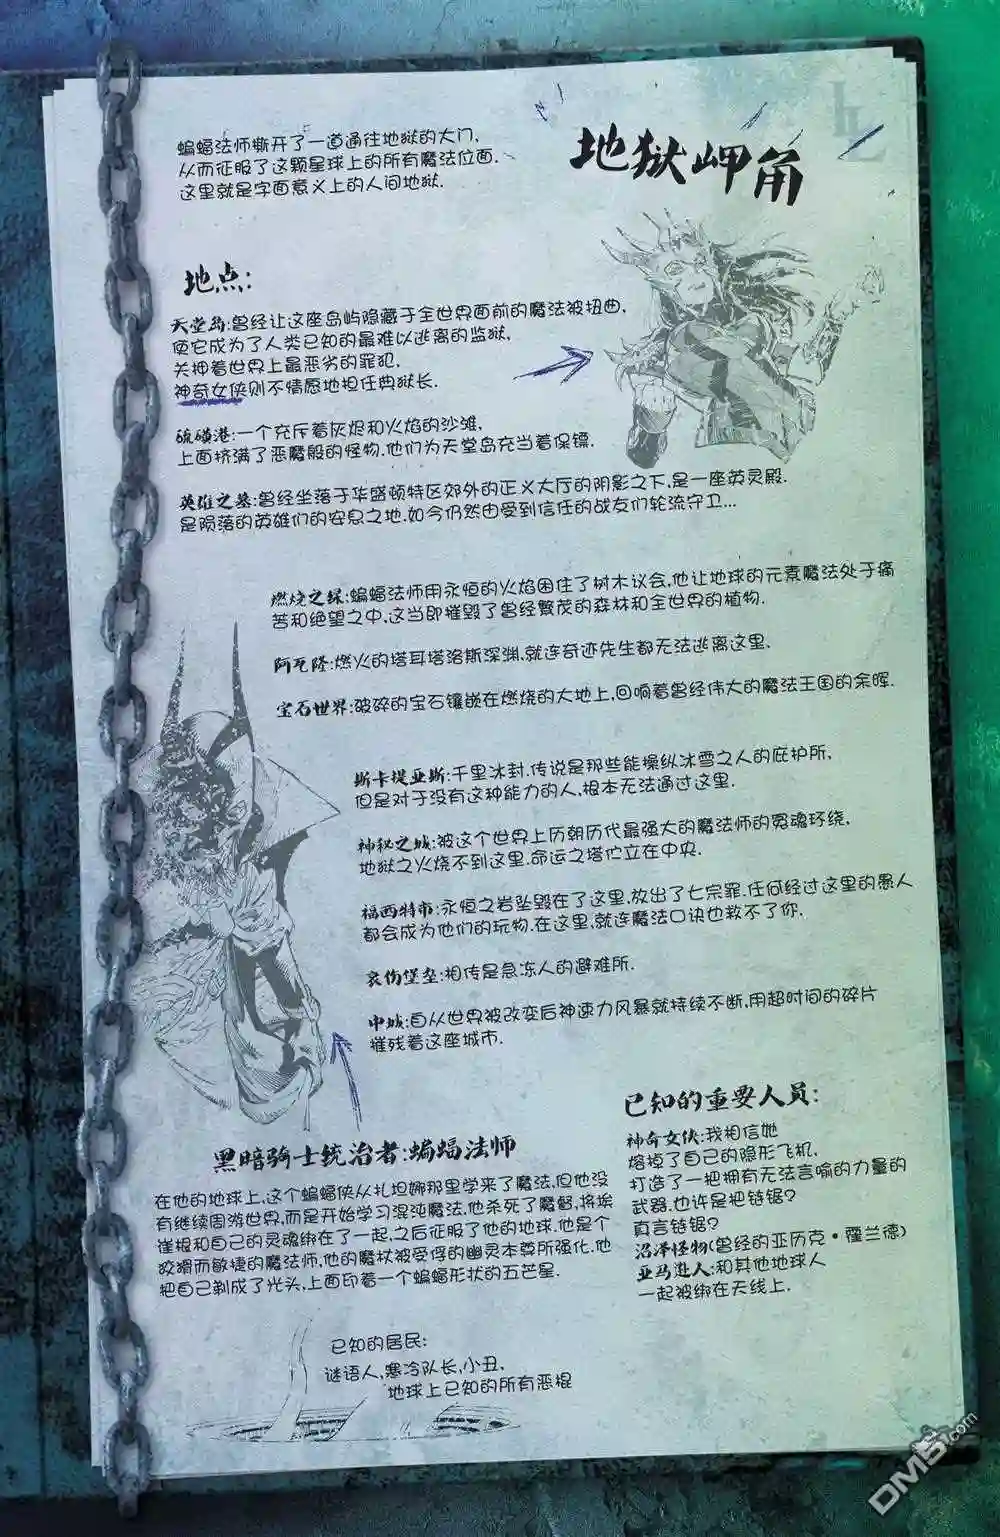 地狱岬角
蝙蝠法师撕开了一道通往地狱的大门,
从而征服了这颗星球上的所有魔法位面.
这里就是字面意义上的人间地狱.
地点:
天堂岛:曾经让这座岛屿隐藏于全世界面前的魔法被扭曲,
使它成为了人类已知的最难以逃离的监狱,
关押着世界上最恶劣的罪犯,
神奇女侠则不情愿地担任典狱长.
硫磺港:一个充斥着灰烬和火焰的沙滩,
上面挤满了恶魔般的怪物.他们为天堂岛充当着保镖.
英雄之墓:曾经坐落于华盛顿特区郊外的正义大厅的阴影之下,是一座英灵殿.
是陨落的英雄们的安息之地.如今仍然由受到信任的战友们轮流守卫...
燃烧之绿:蝙蝠法师用永恒的火焰困住了树木议会,他让地球的元素魔法处于痛
苦和绝望之中,这当即摧毁了曾经繁茂的森林和全世界的植物.
阿卐隆:燃火的塔耳塔洛斯深渊.就连奇迹先生都无法逃离这里.
宝石世界:破碎的宝石镶嵌在燃烧的大地上,回响着曾经伟大的魔法王国的余晖.
斯卡提亚斯:千里冰封.传说是那些能操纵冰雪之人的庇护所,
但是对于没有这种能力的人,根本无法通过这里.
神秘之城:被这个世界上历朝历代最强大的魔法师的冤魂环绕,
地狱之火烧不到这里.命运之塔伫立在中央.
福西特市:永恒之岩坠毁在了这里,放出了七宗罪.任何经过这里的愚人
都会成为他们的玩物.在这里,就连魔法口诀也救不了你.
哀伤堡垒:相传是急冻人的避难所.
中城:自从世界被改变后神速力风暴就持续不断,用超时间的碎片
摧残着这座城市.
黑暗骑士统治者:蝙蝠法师
在他的地球上,这个蝙蝠侠从扎坦娜那里学来了魔法,但他没
有继续周游世界,而是开始学习混沌魔法.他杀死了魔督,将埃
崔根和自己的灵魂绑在了一起,之后征服了他的地球.他是个
狡猾而敏捷的魔法师,他的魔杖被受俘的幽灵本尊所强化.他
把自己剃成了光头,上面印着一个蝙蝠形状的五芒星.
已知的居民:
谜语人,寒冷队长,小丑,
地球上已知的所有恶棍
已知的重要人员:
神奇女侠:我相信她
熔掉了自己的隐形飞机,
打造了一把拥有无法言喻的力量的
武器.也许是把链锯?
真言链锯?
沼泽怪物(曾经的亚历克·霍兰德)
亚马逊人:和其他地球人
一起被绑在天线上.
DM5.com